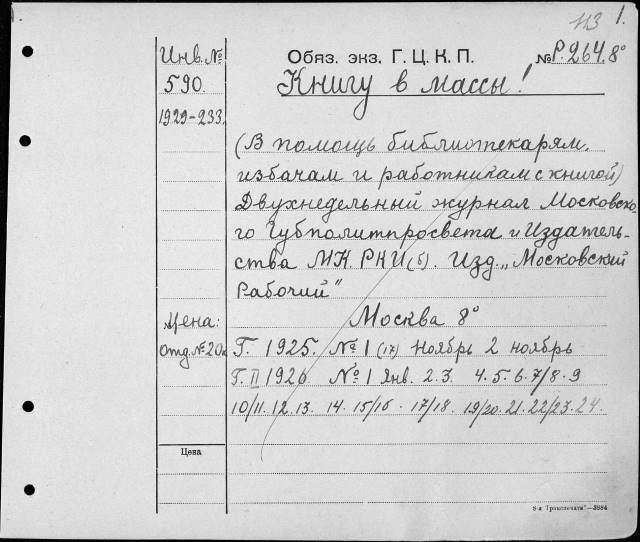 113 1.
Инв. №
590.
1929-233.
Обяз. экз. Г. Ц. К. П. № Р. 264. 8°
Книгу в массы!
(В помощь библиотекарям,
избачам и работникам с книгой)
Двухнедельный журнал Московско-
го Губполитпросвета и Издатель-
ства МК. РКП(б). Изд. „Московский
Рабочий"
Москва 8°
Цена:
Отд. № 20к
Г. 1925. № 1 (17) ноябрь 2 ноябрь
Г. II 1926 № 1 Янв. 2. 3. 4. 5. 6. 7/8. 9
10/11. 12. 13. 14. 15/16. 17/18. 19/20. 21. 22/23. 24.
Цена
3884